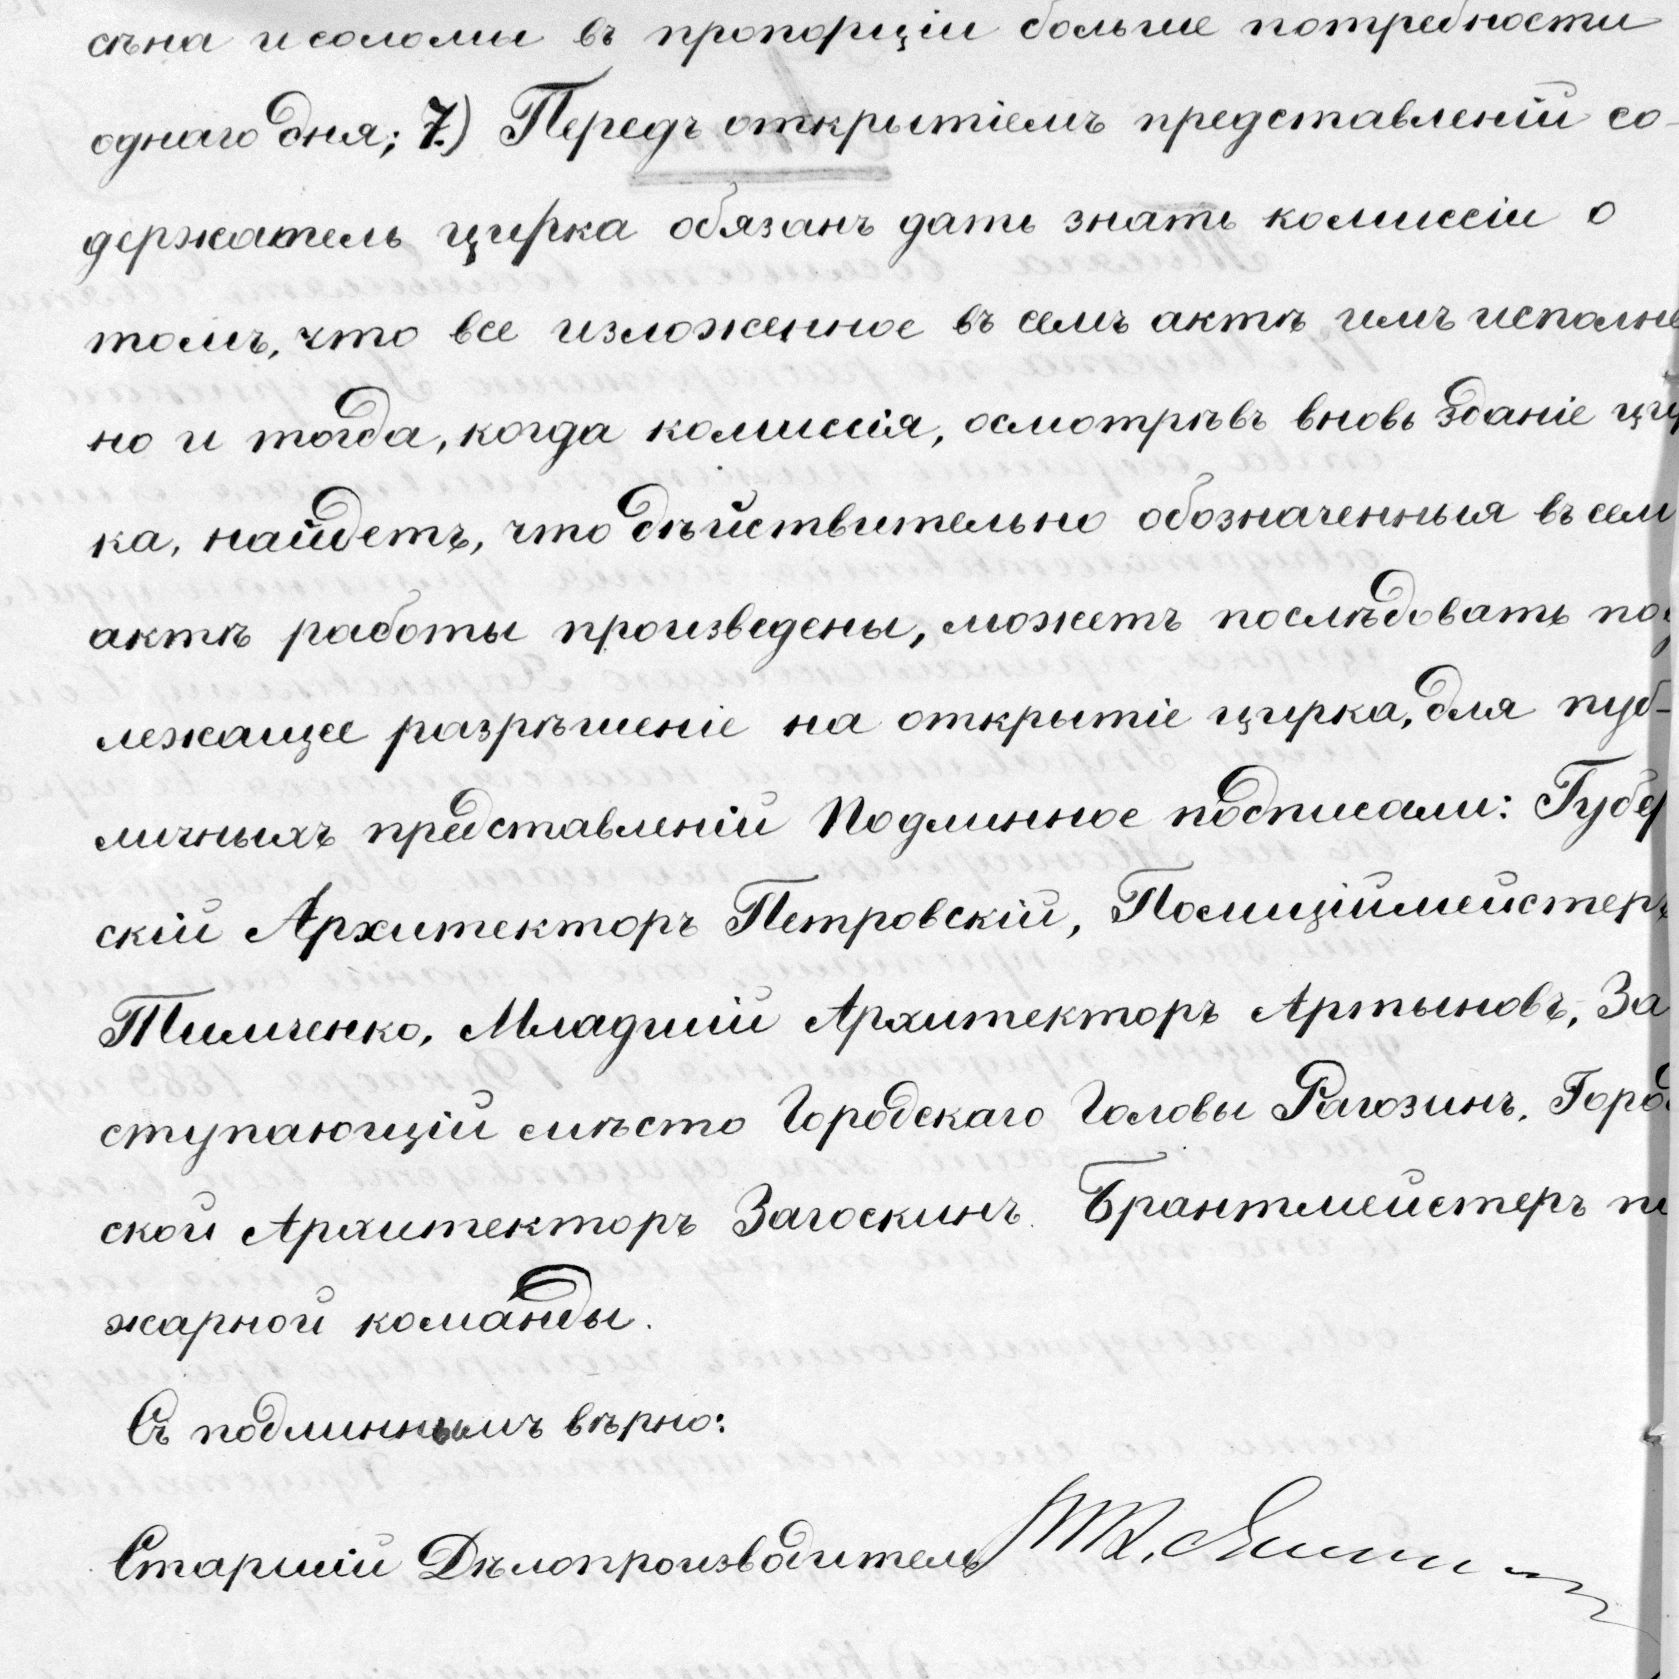 сѣна и соломы въ пропорціи больше потребности
однаго дня; 7.) Передъ открытіемъ представленій со-
держатель цирка обязанъ дать знать комиссіи о
томъ, что все изложенное въ семъ актѣ имъ исполне
но и тогда, когда комиссія, осмотрѣвъ вновь зданіе цир
ка, найдетъ, что дѣйствительно обозначенныя въ сем
актѣ работы произведены, можетъ послѣдовать под
лежащее разрѣшеніе на открытіе цирка, для пуб-
личныхъ представленій Подлинное подписали: Губер
скій Архитекторъ Петровскій, Полиціймейстеръ
Тимченко, Младшій Архитекторъ Артыновъ, За
ступающій мѣсто Городскаго Головы Рагозинъ, Город
ской Архитекторъ Загоскинъ. Брантмейстеръ по
жарной команды.
Съ подлиннымъ вѣрно:
Старшій Дѣлопроизводитель